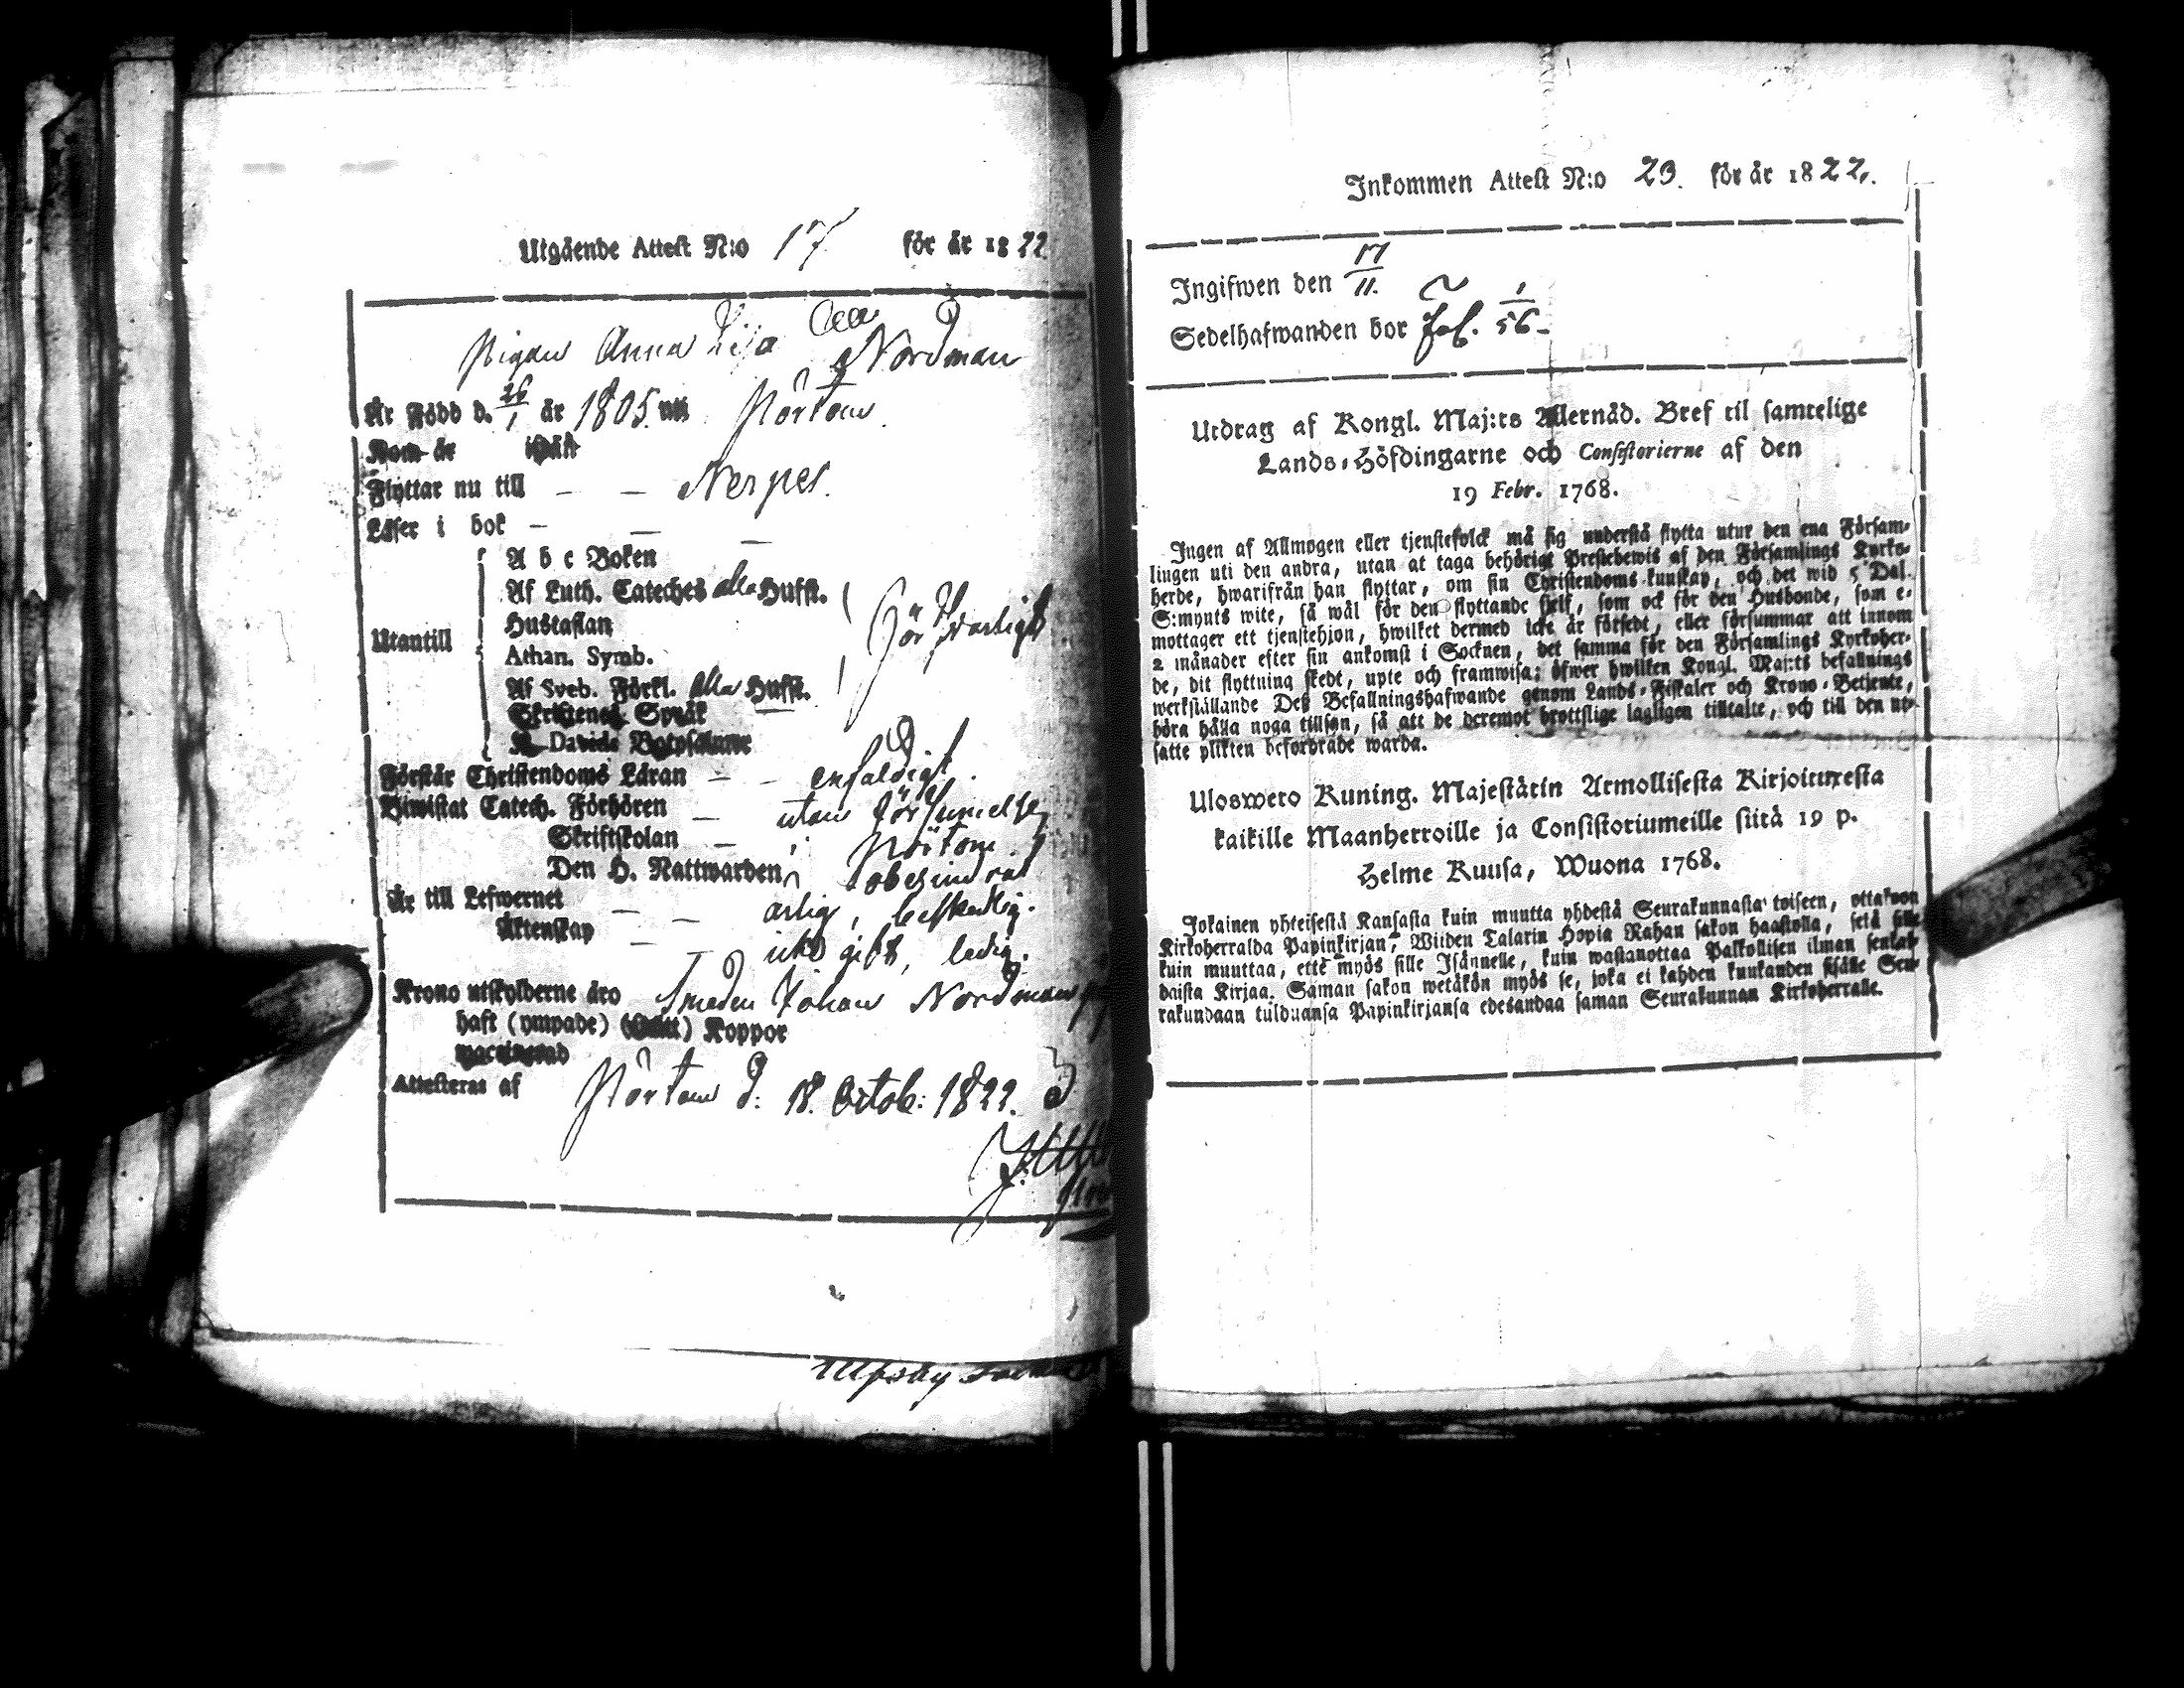 Utgående Attest N:o 17 för år 1822
Pigan Anna Lisa
Nordman
Är Född d. 26/1 år 1805 uti Pörtom
Kom år
Flyttar nu till – – Nerpes.
Läser i bok – – –
A b c Boken
Af Luth. Cateches alla Hufst.
Hustaflan
Utantill
Athan. Symb.
Försvarligt
Af Sveb. Förkl. alla Hufst.
Skriftenes Språk
K. Davids Botpsalmer
Förstår Christendoms Läran – – enfaldigt.
Biwistat Catech. Förhören – utan försummelse
Skriftskolan – i Pörtom
Den H. Nattwarden obehindrat
Är till Lefwernet – – ärlig, beskedlig.
Äktenskap – icke gift, ledig.
Krono utskylderne äro Smeden Johan Nordman
haft (ympade) Koppor
Attesteras af Pörtom d: 18. Octob: 1822.
Inkommen Attest N:o 23. för år 1822.
Ingifwen den 17/11.
Sedelhafwanden bor fol. 1/56
Utdrag af Kongl. Maj:ts Allernåd. Bref til samtelige
Lands-Höfdingarne och Consistorierne af den
19 Febr. 1768.
Ingen af Allmogen eller tjenstefolck må sig understå flytta utur den ena Försam-
lingen uti den andra, utan at taga behörigt Prestebewis af den Församlings Kyrko-
herde, hwarifrån han flyttar, om sin Christendoms kunskap, och det wid 5 Dal.
S:mynts wite, så wäl för den flyttande sjelf, som ock för den Husbonde, som e-
mottager ett tjenstehjon, hwilket dermed icke är försedt, eller försummar att innom
2 månader efter sin ankomst i Socknen, det samma för den Församlings Kyrkoher-
de, dit flyttning skedt, upte och framwisa; öfwer hwilken Kongl. Maj:ts befallnings
werkställande Deß Befallningshafwande genom Lands-Fiskaler och Krono-Betjente,
böra hålla noga tillsyn, så att de deremot brottslige lagligen tilltalte, och till den ut-
satte plikten befordrade warda.
Uloswero Kuning. Majestätin Armollisesta Kirjoituxesta
kaikille Maanherroille ja Consistoriumeille siitä 19 p.
Helme Kuusa, Wuona 1768.
Jokainen yhteisestä Kansasta kuin muutta yhdestä Seurakunnasta toiseen, ottakoon
Kirkoherralda Papinkirjan, Wiiden Talarin Hopia Rahan sakon haastolla, setä sille
kuin muuttaa, että myös sille Isännelle, kuin wastanottaa Palkollisen ilman senkal-
daista Kirjaa. Saman sakon wetäkön myös se, joka ei kahden kuukauden sisälle Seu-
rakundaan tulduansa Papinkirjansa edesandaa saman Seurakunnan Kirkoherralle.